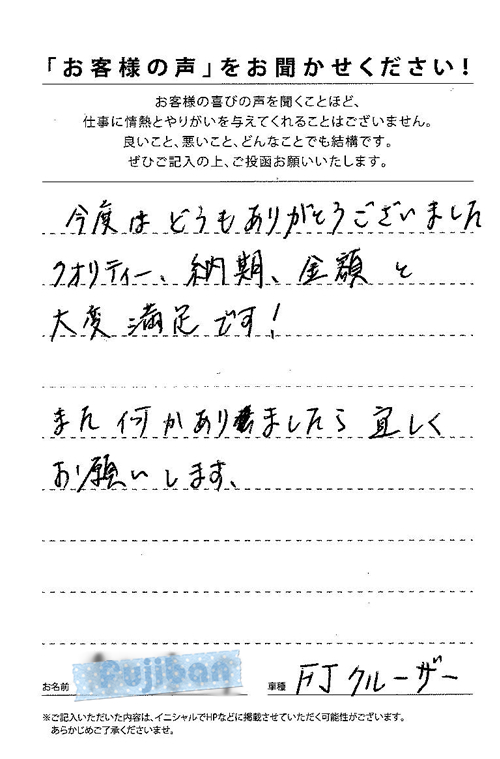 「お客様の声」をお聞かせください!
お客様の喜びの声を聞くことほど、
仕事に情熱とやりがいを与えてくれることはございません。
良いこと、悪いこと、どんなことでも結構です。
ぜひご記入の上、ご投函お願いいたします。
今度はどうもありがとうございました
クオリティー、納期、金額と
大変満足です!
また何かありましたら宜しく
お願いします、
お名前 Fujiban 車種 FJクルーザー
※ご記入いただいた内容は、イニシャルでHPなどに掲載させていただく可能性がございます。
あらかじめご了承くださいませ。